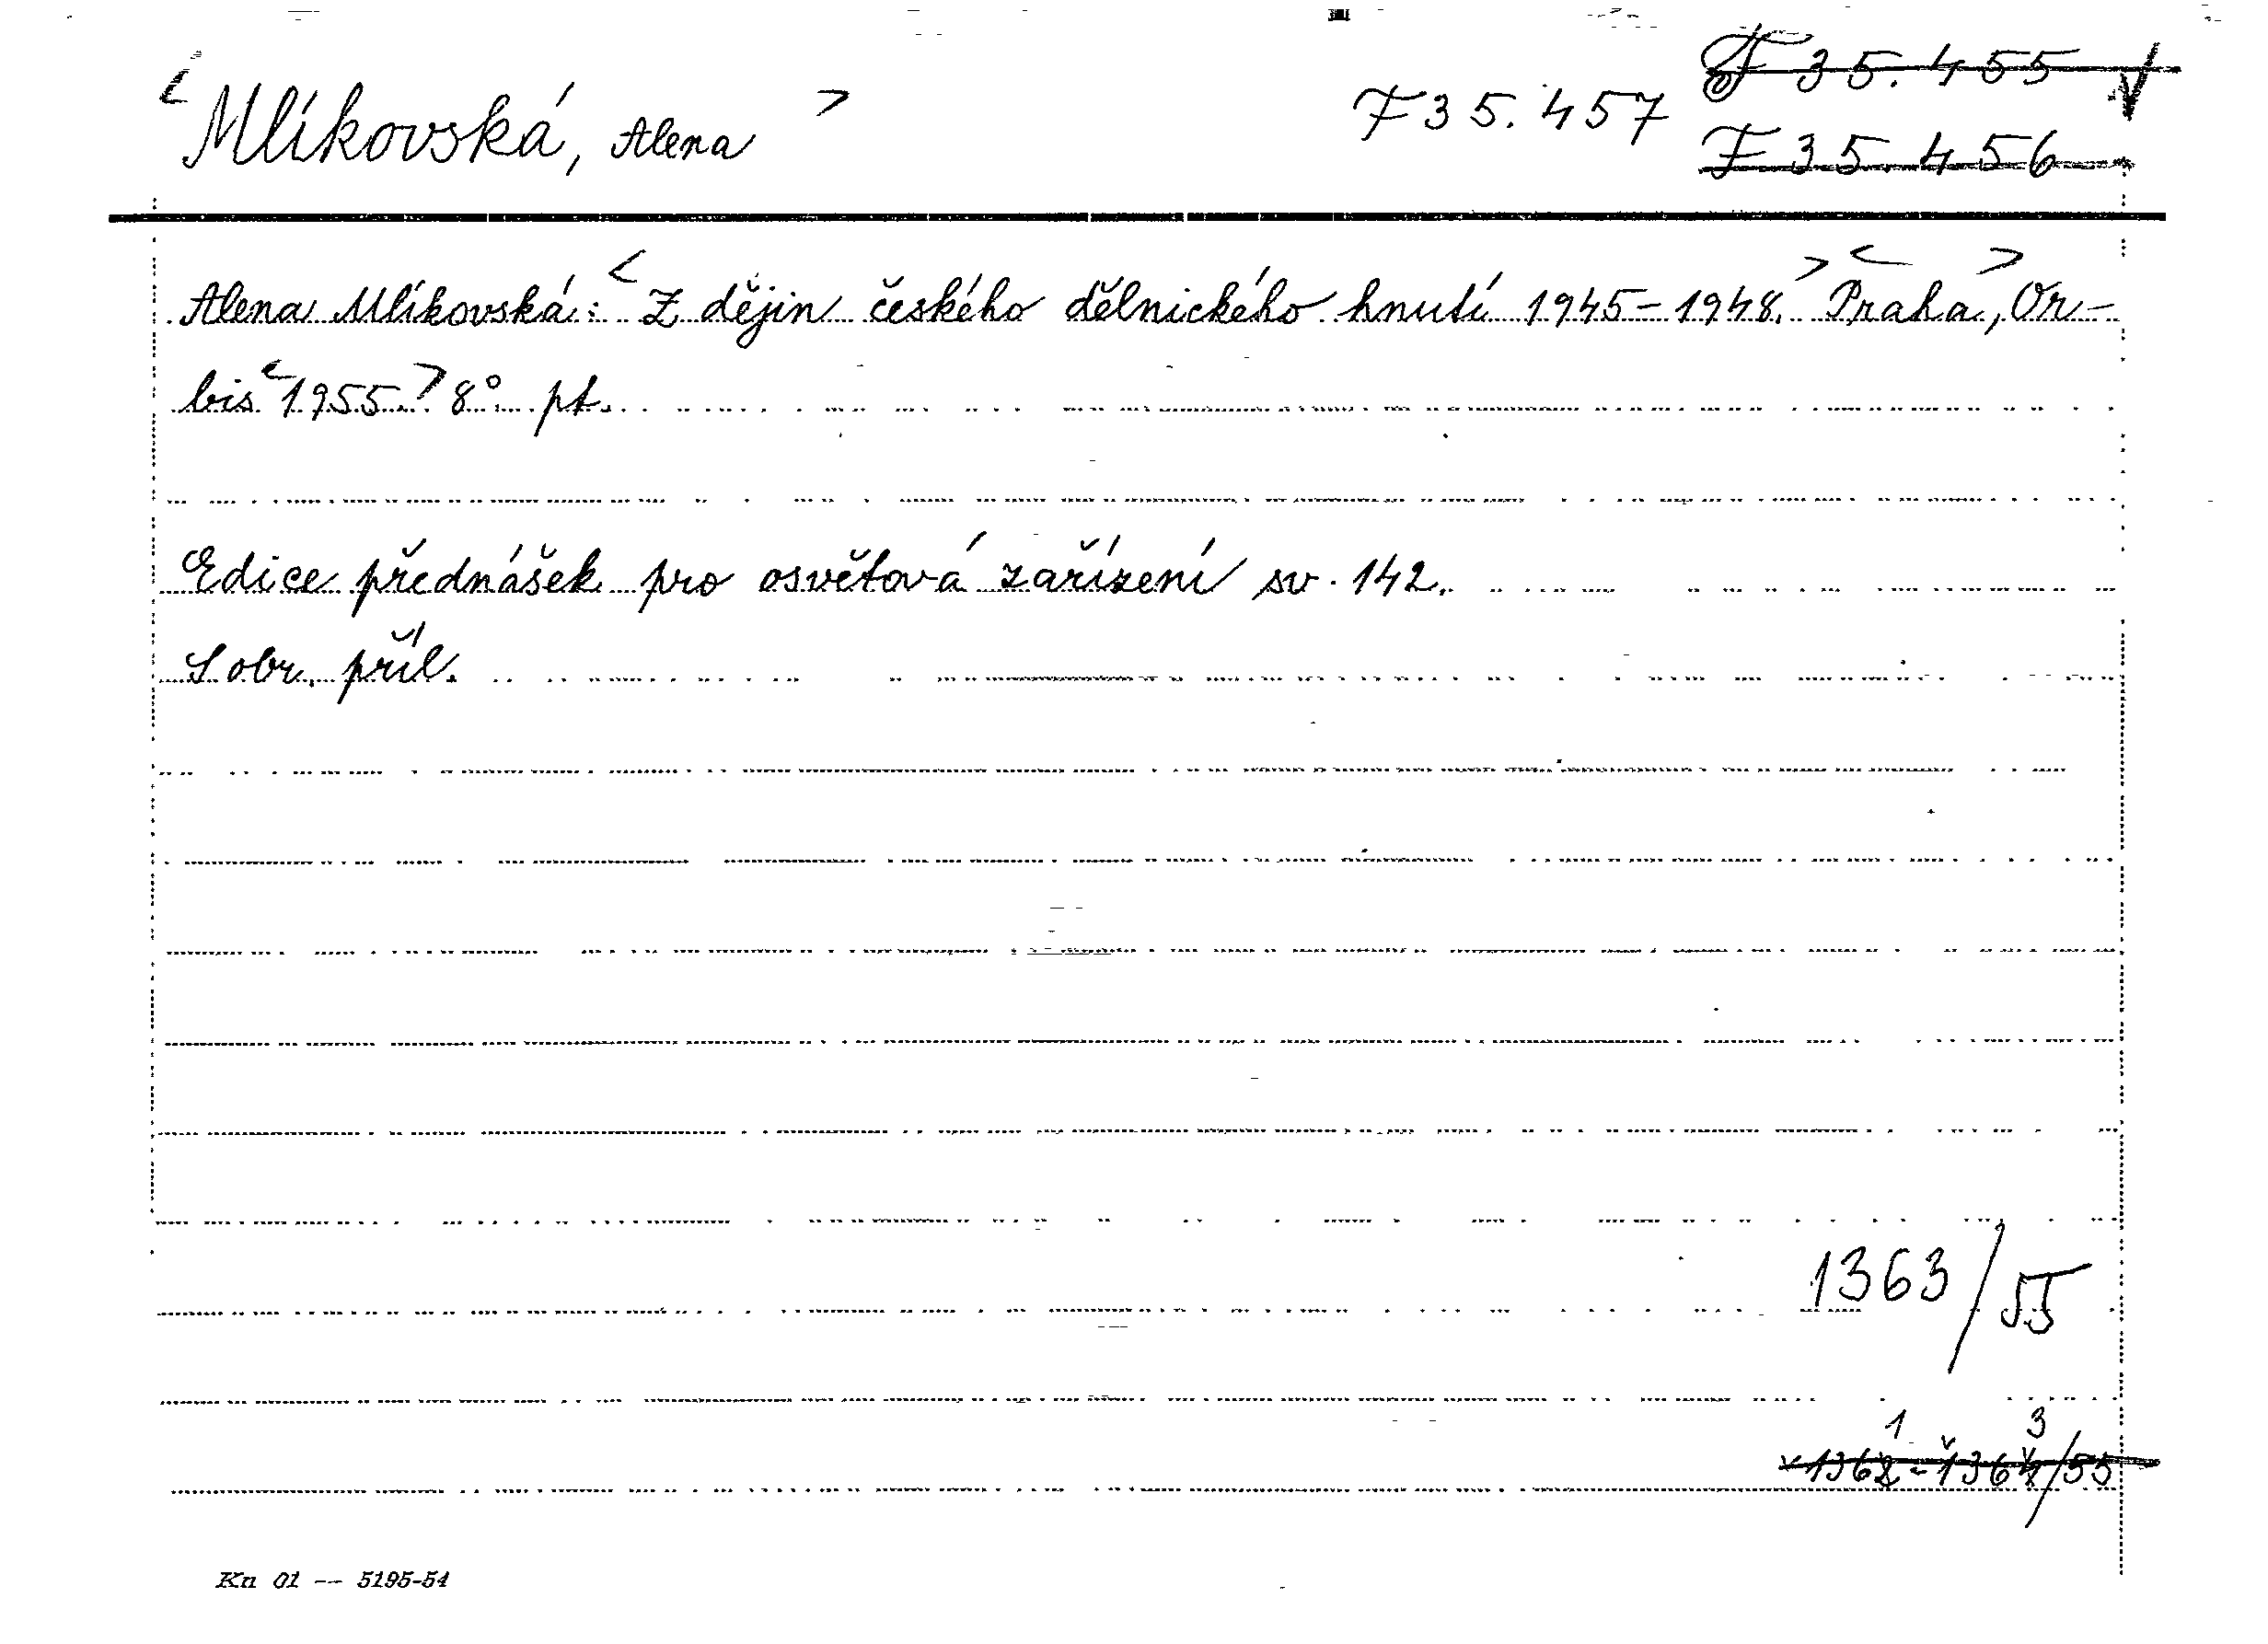 F 35.455
< Mlíkovská, Alena > F 35.457
F 35.456
Alena Mlíkovská: < Z dějin českého dělnického hnutí 1945-1948. > < Praha, > Or-
bis < 1955. > 8° pt.
Edice přednášek pro osvětová zařízení sv. 142.
S obr. příl.
1363/55
1 3
Kn 01 -- 5195-54